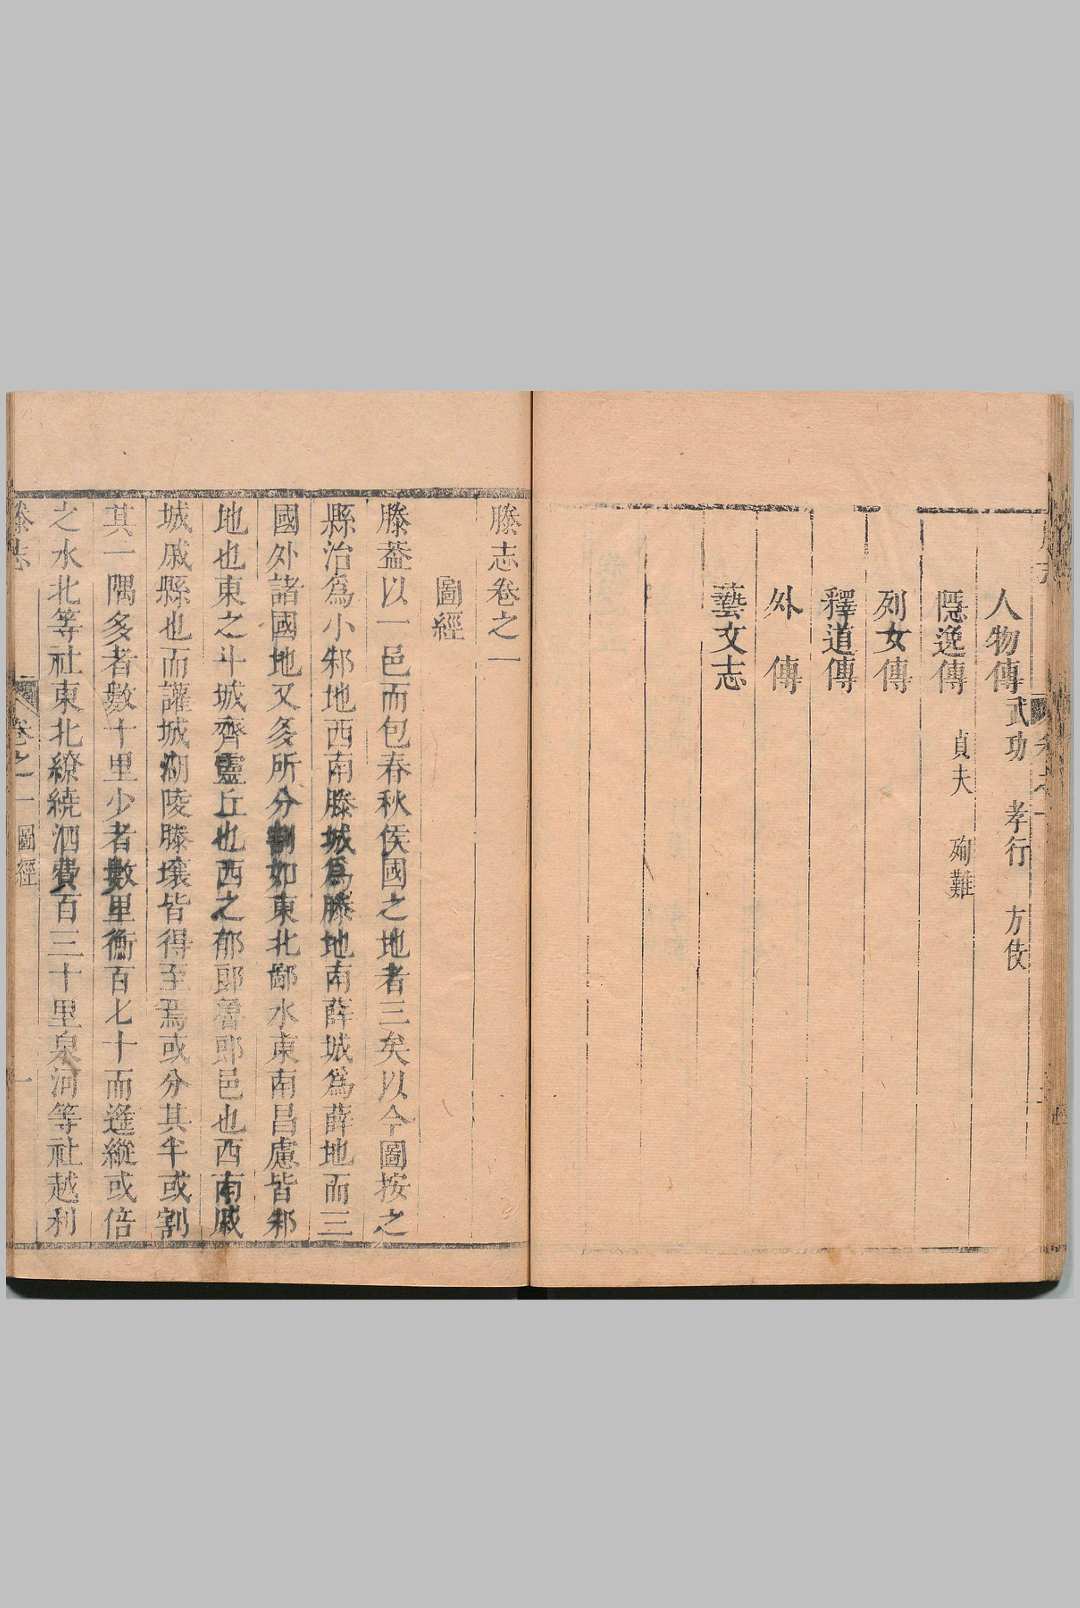 人物傳 武功 孝行 方伎
貞夫 殉難
隱逸傳
列女傳
釋道傳
外傳
藝文志
滕志卷之一
圖經
滕葢以一邑而包春秋侯國之地者三矣以今圖按之
縣治爲小邾地西南滕城爲滕地南薛城爲薛地而三
國外諸國地又多所分割如東北鄫水東南昌慮皆邾
地也東之斗城齊靈丘也西之郁郎魯郎邑也西南戚
城戚縣也而讙城湖陵滕壤皆得至焉或分其半或割
其一隅多者數十里少者數里衡百七十而遙縱或倍
之水北等社東北繚繞泗費百三十里泉河等社越利
滕志 卷之一 圖經 一